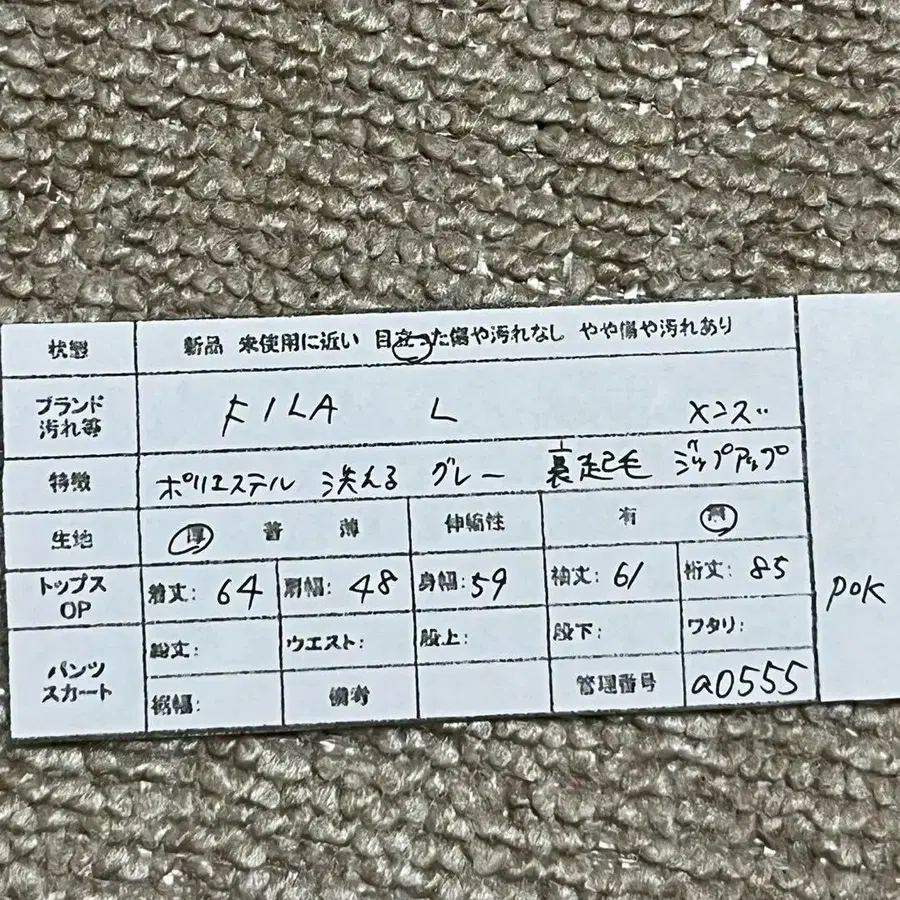 状態 新品 未使用に近い 目立った傷や汚れなし やや傷や汚れあり
ブランド 汚れ等 FILA L メンズ
特徴 ポリエステル 洗える グレー 裏起毛 ジップアップ
生地 厚 普 薄 伸縮性 有 無
トップス OP 着丈: 64 肩幅: 48 身幅: 59 袖丈: 61 裄丈: 85
パンツ スカート 総丈: ウエスト: 股上: 股下: ワタリ:
裾幅: 備考 管理番号 a0555
POK